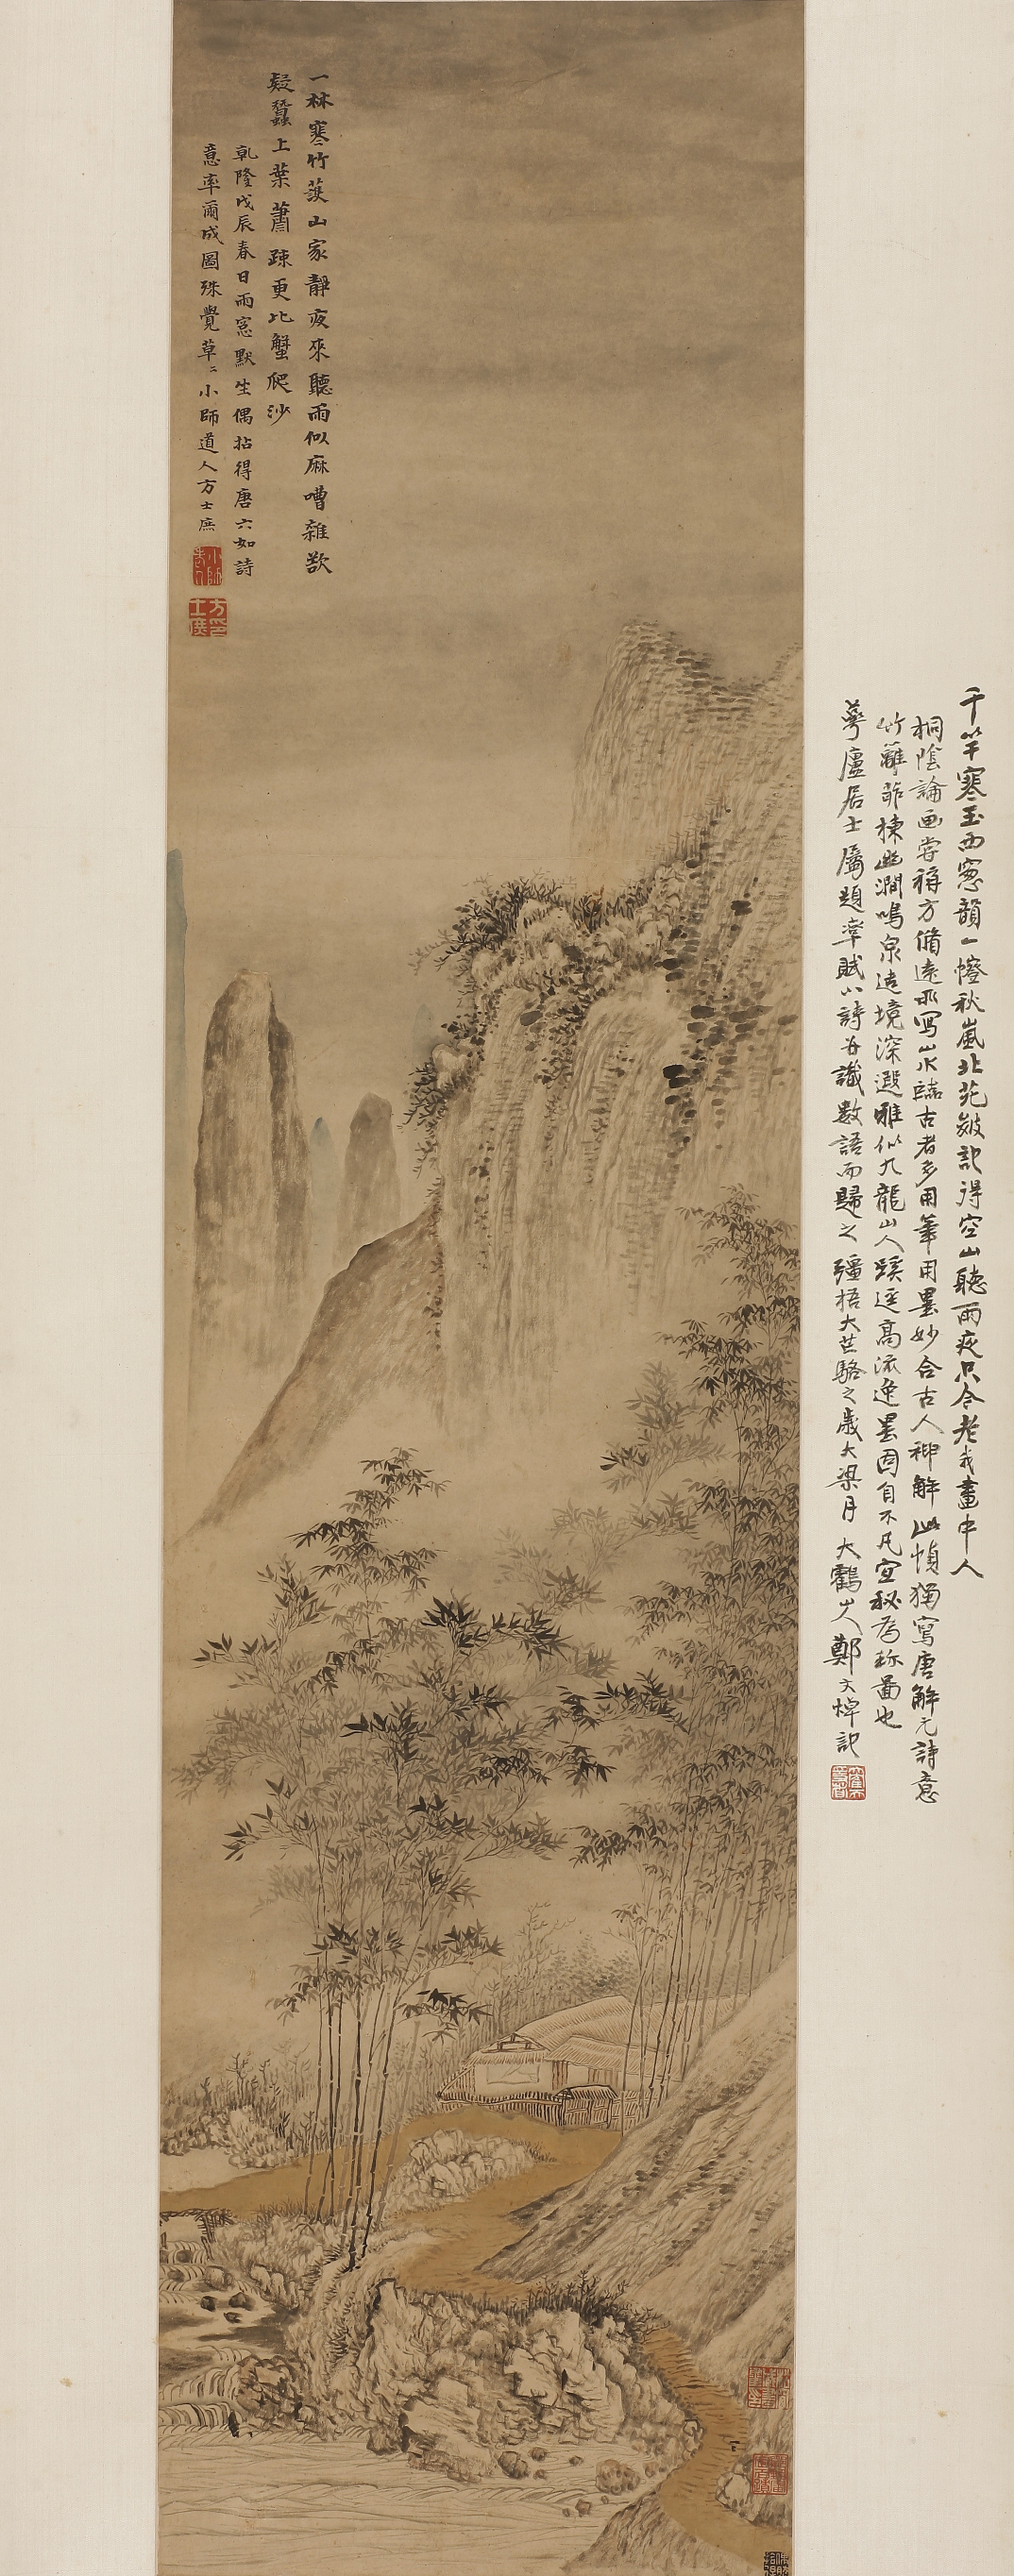 一林寒竹護山家靜夜來聽雨似麻嘈雜欲
疑蠶上葉蕭疎更比蟹爬沙
乾隆戊辰春日雨窓默坐偶拈得唐六如詩
意率爾成圖殊覺草〻小師道人方士庶
小師老人
方士庶印
千竿寒玉西窓韻一㡧秋嵐北苑皴記得空山聽雨夜只今老我畫中人
桐陰論画嘗稱方脩遠所写山水臨古者多用筆用墨妙合古人神解此幀獨寫唐解元詩意
竹籬茆棟幽澗鳴泉造境深遐雅似九龍山人蹊逕高流逸墨固自不凡宜秘為珎圖也
蕚廬居士屬題率賦小詩并識數語而歸之彊梧大芒駱之歲大梁月 大鶴山人鄭文焯記